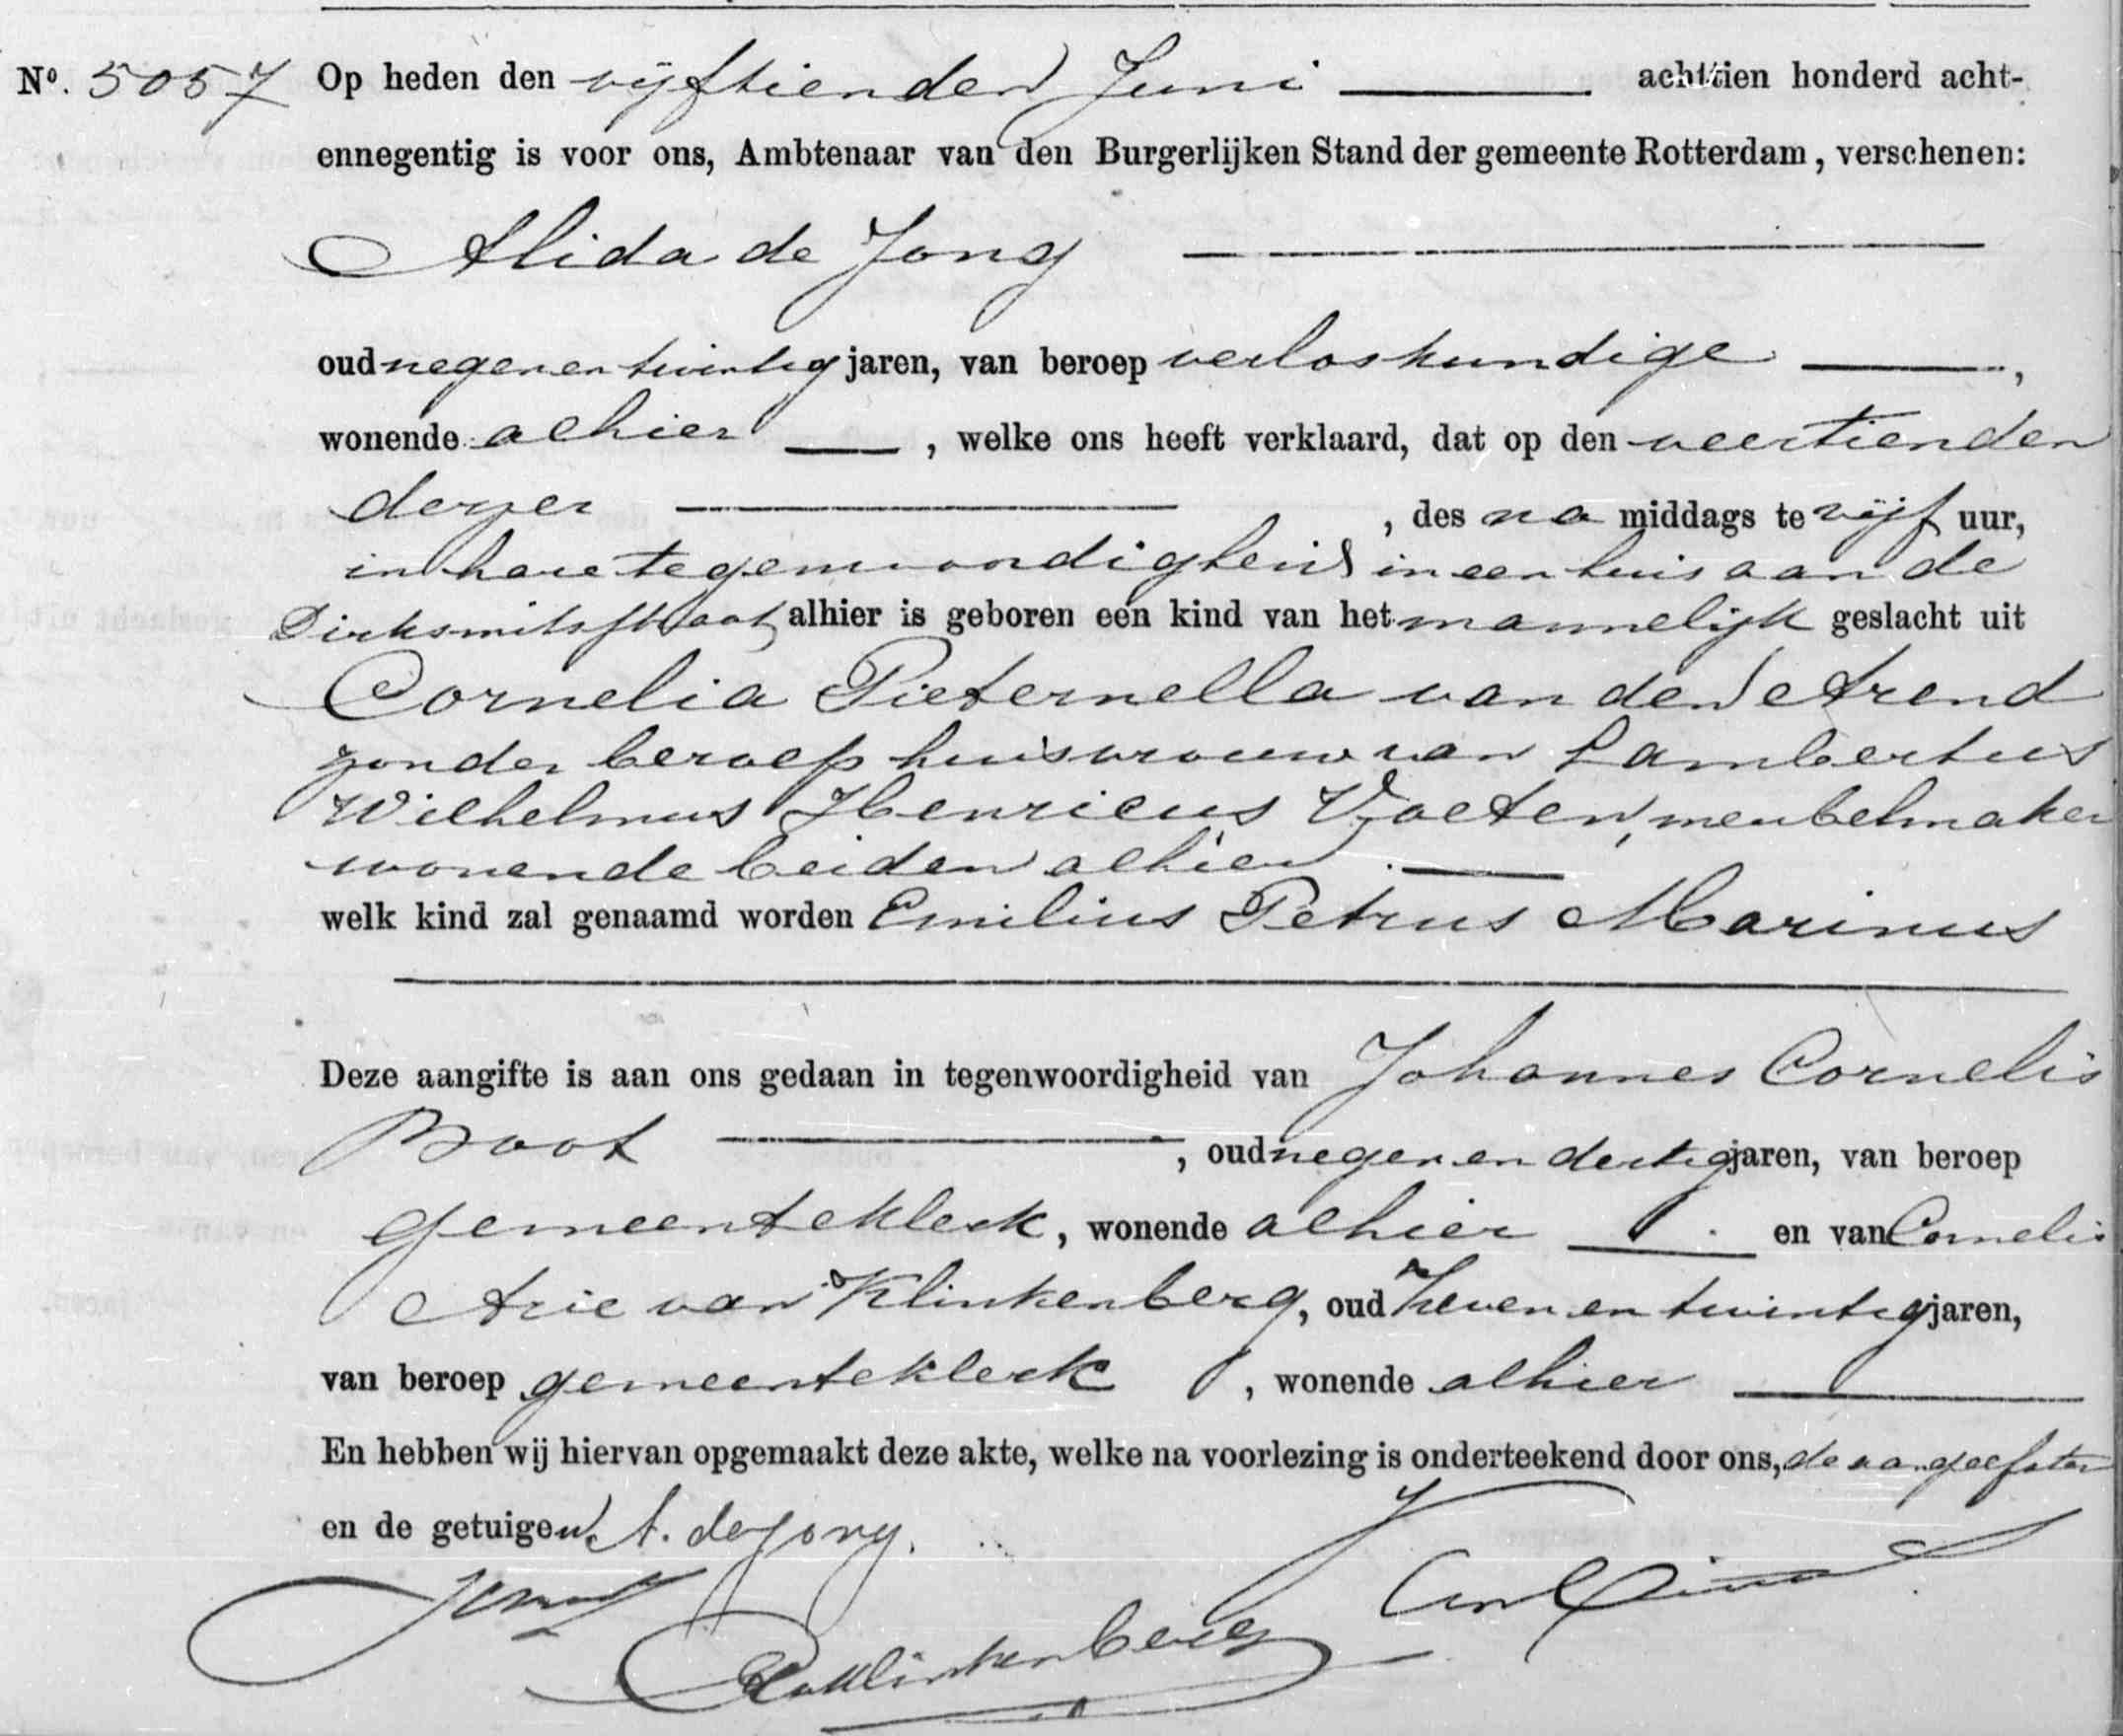 Nº. 5057 Op heden den vijftienden Juni achttien honderd acht-
ennegentig is voor ons, Ambtenaar van den Burgerlijken Stand der gemeente Rotterdam, verschenen:
Alida de Jong
oud negenentwintig jaren, van beroep verloskundige,
wonende alhier, welke ons heeft verklaard, dat op den veertienden
dezer, des na middags te vijf uur,
in hare tegenwoordigheid in een huis aan de
Dirksmitsstraat alhier is geboren een kind van het mannelijk geslacht uit
Cornelia Pieternella van den Arend
zonder beroep huisvrouw van Lambertus
Wilhelmus Henricus Voeten, meubelmaker
wonende beiden alhier
welk kind zal genaamd worden Emilius Petrus Marinus
Deze aangifte is aan ons gedaan in tegenwoordigheid van Johannes Cornelis
Boot, oud negenendertig jaren, van beroep
gemeenteklerk, wonende alhier en van Cornelis
Arie van Klinkenberg, oud zeven en twintig jaren,
van beroep gemeenteklerk, wonende alhier
En hebben wij hiervan opgemaakt deze akte, welke na voorlezing is onderteekend door ons, de aangeefster
en de getuigen. A. de Jong.
Klinkenberg